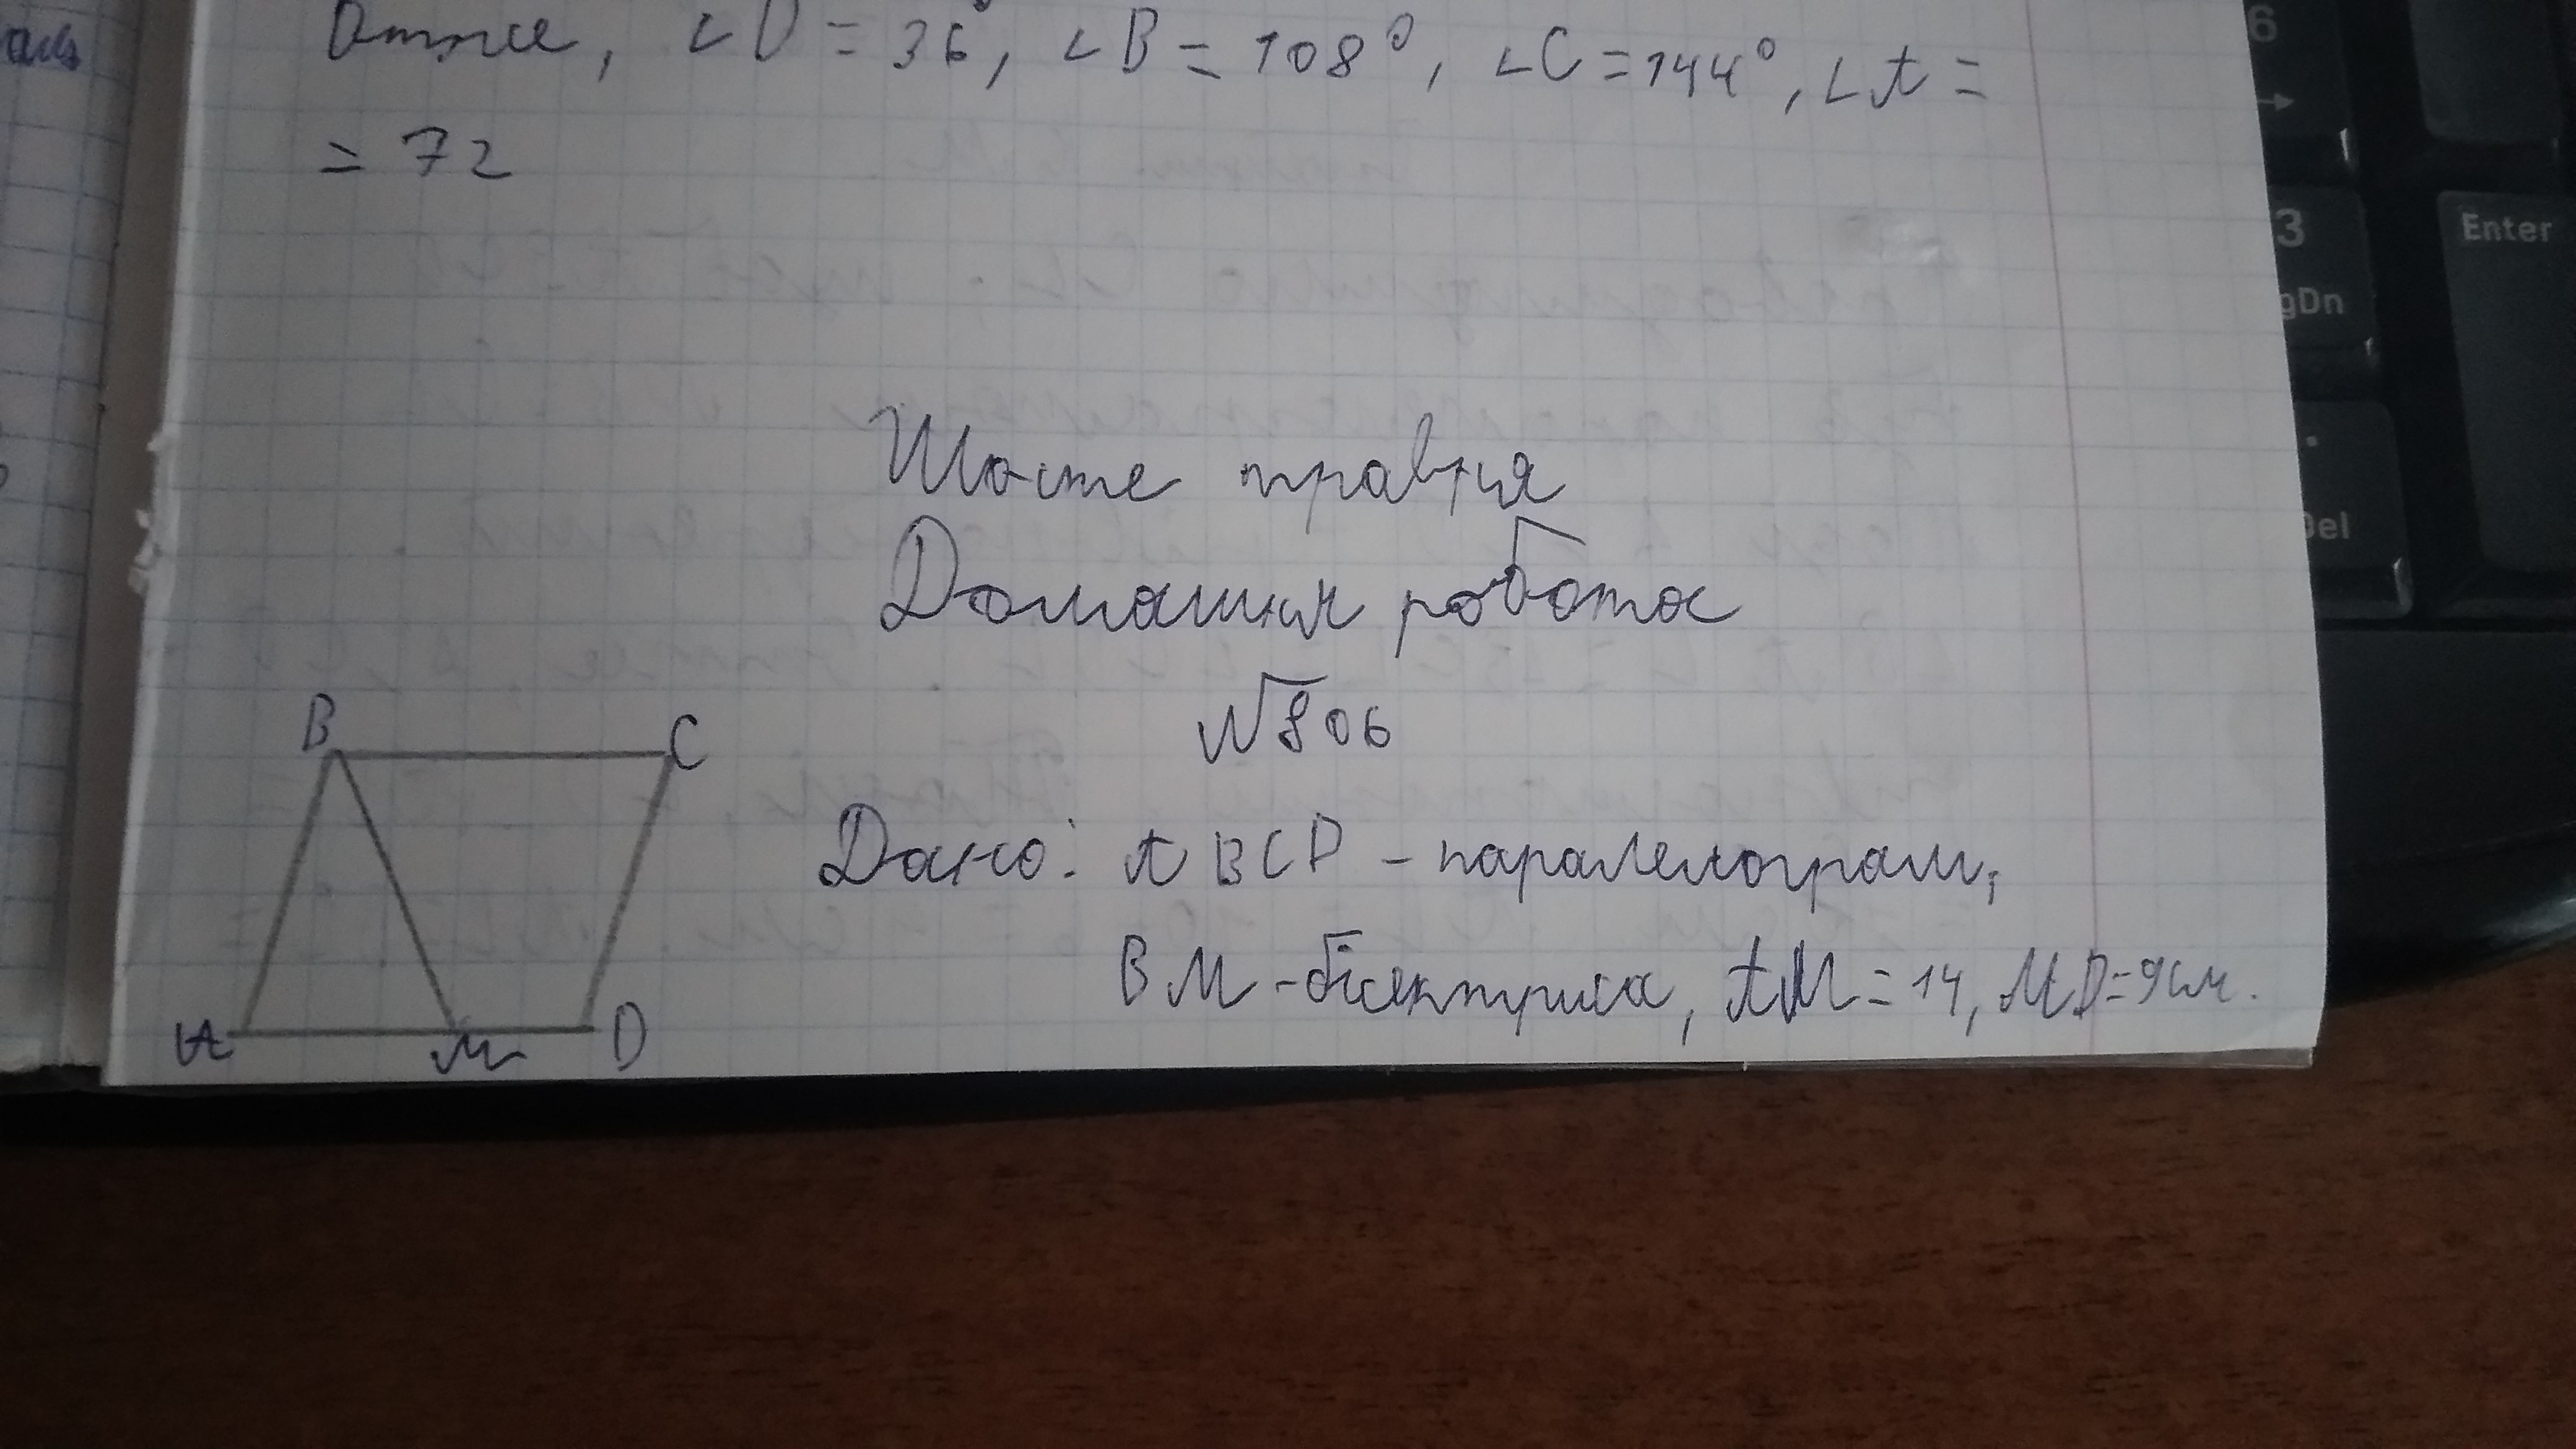 Отже, ∠D = 36°, ∠B = 108°, ∠C = 144°, ∠A =
= 72
Шосте травня
Домашня робота
№806
B
C
A
M
D
Дано: ABCD - паралелограм,
BM - бісектриса, AM = 14, MD = 9 см.
6
3
gDn
Enter
Del